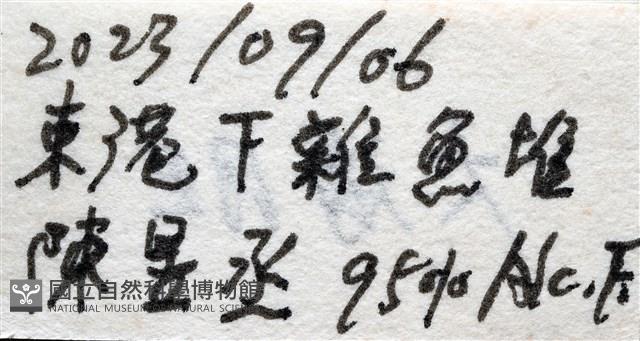 2023/09/06
東港下雜魚堆
陳昱丞 95% Alc. F.
國立自然科學博物館
NATIONAL MUSEUM OF NATURAL SCIENCE